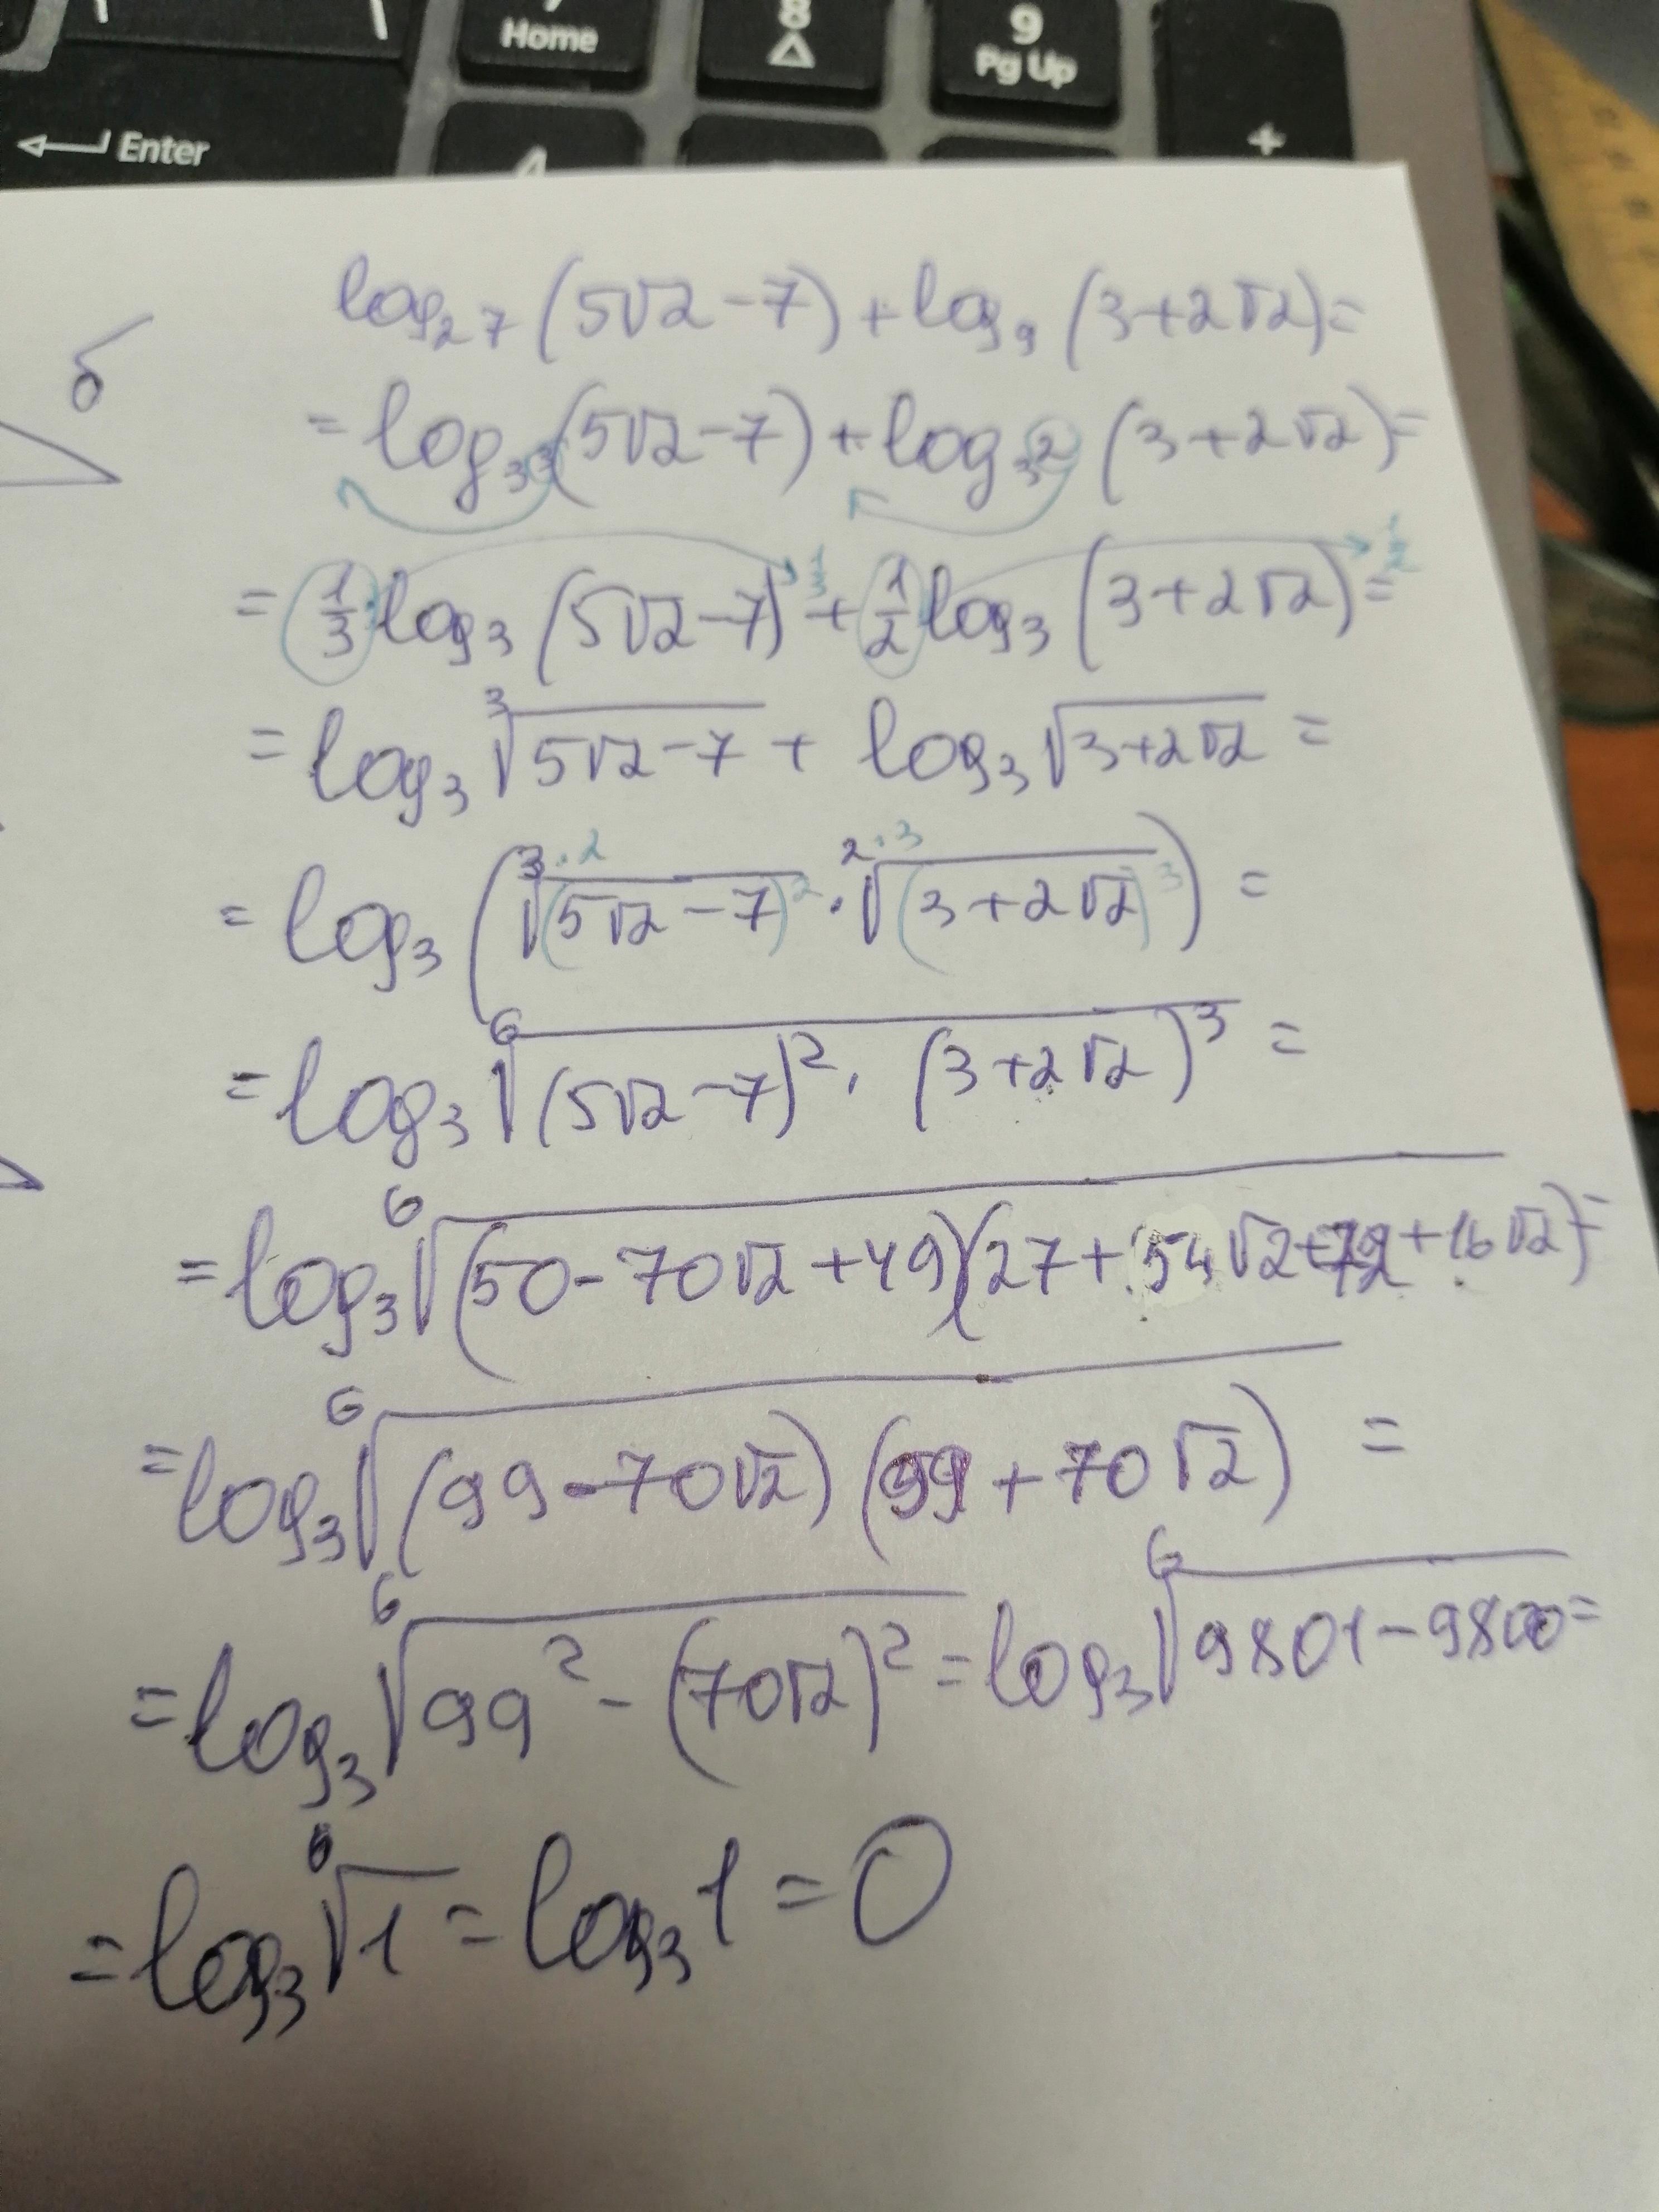 Home
8
9
Pg Up
Enter
4
+
б
log₂₇ (5√2 − 7) + log₉ (3 + 2√2) =
= log₃³ (5√2 − 7) + log₃² (3 + 2√2) =
= 1/3 · log₃ (5√2 − 7)^(1/3) + 1/2 · log₃ (3 + 2√2)^(1/2) =
= log₃ ³√(5√2 − 7) + log₃ √(3 + 2√2) =
= log₃ (³·²√((5√2 − 7)²) · ²·³√((3 + 2√2)³)) =
= log₃ ⁶√((5√2 − 7)² · (3 + 2√2)³) =
= log₃ ⁶√((50 − 70√2 + 49)(27 + 54√2 + 72 + 16√2)) =
= log₃ ⁶√((99 − 70√2) (99 + 70√2)) =
= log₃ ⁶√(99² − (70√2)²) = log₃ ⁶√(9801 − 9800) =
= log₃ ⁶√1 = log₃ 1 = 0